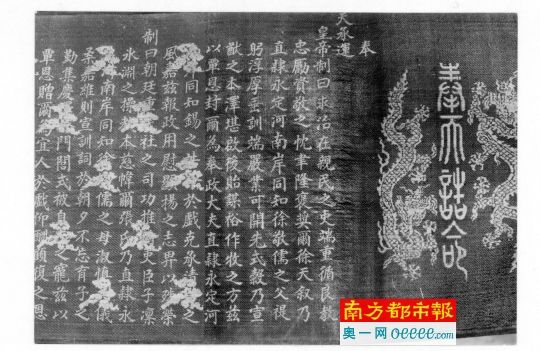 奉天誥命
奉
天承運
皇帝制曰求治在親民之吏端重循良教
忠勵資敬之忱聿隆褒奬爾徐天叙乃
直隸永定河南岸同知徐敬儒之父禔
躬淳厚垂訓端嚴業可開先式榖乃宣
猷之本澤堪啟後貽謀裕作牧之方茲
以覃恩封爾為奉政大夫直隸永定河
岸同知錫之於戲克承清
風嘉茲報政用慰揚之志畀以榮
制曰朝廷重社之司功推史臣子凜
冰淵之操本慈幃爾張氏乃直隸永
河南岸同知徐儒之母淑慎儀
柔嘉維則宣訓詞於朝夕不忘育子之
勤集慶門閭式被自之寵茲以
覃恩贈爾宜人於戲仰酬顧復之恩
南方都市報
奥一网 oeeee.com